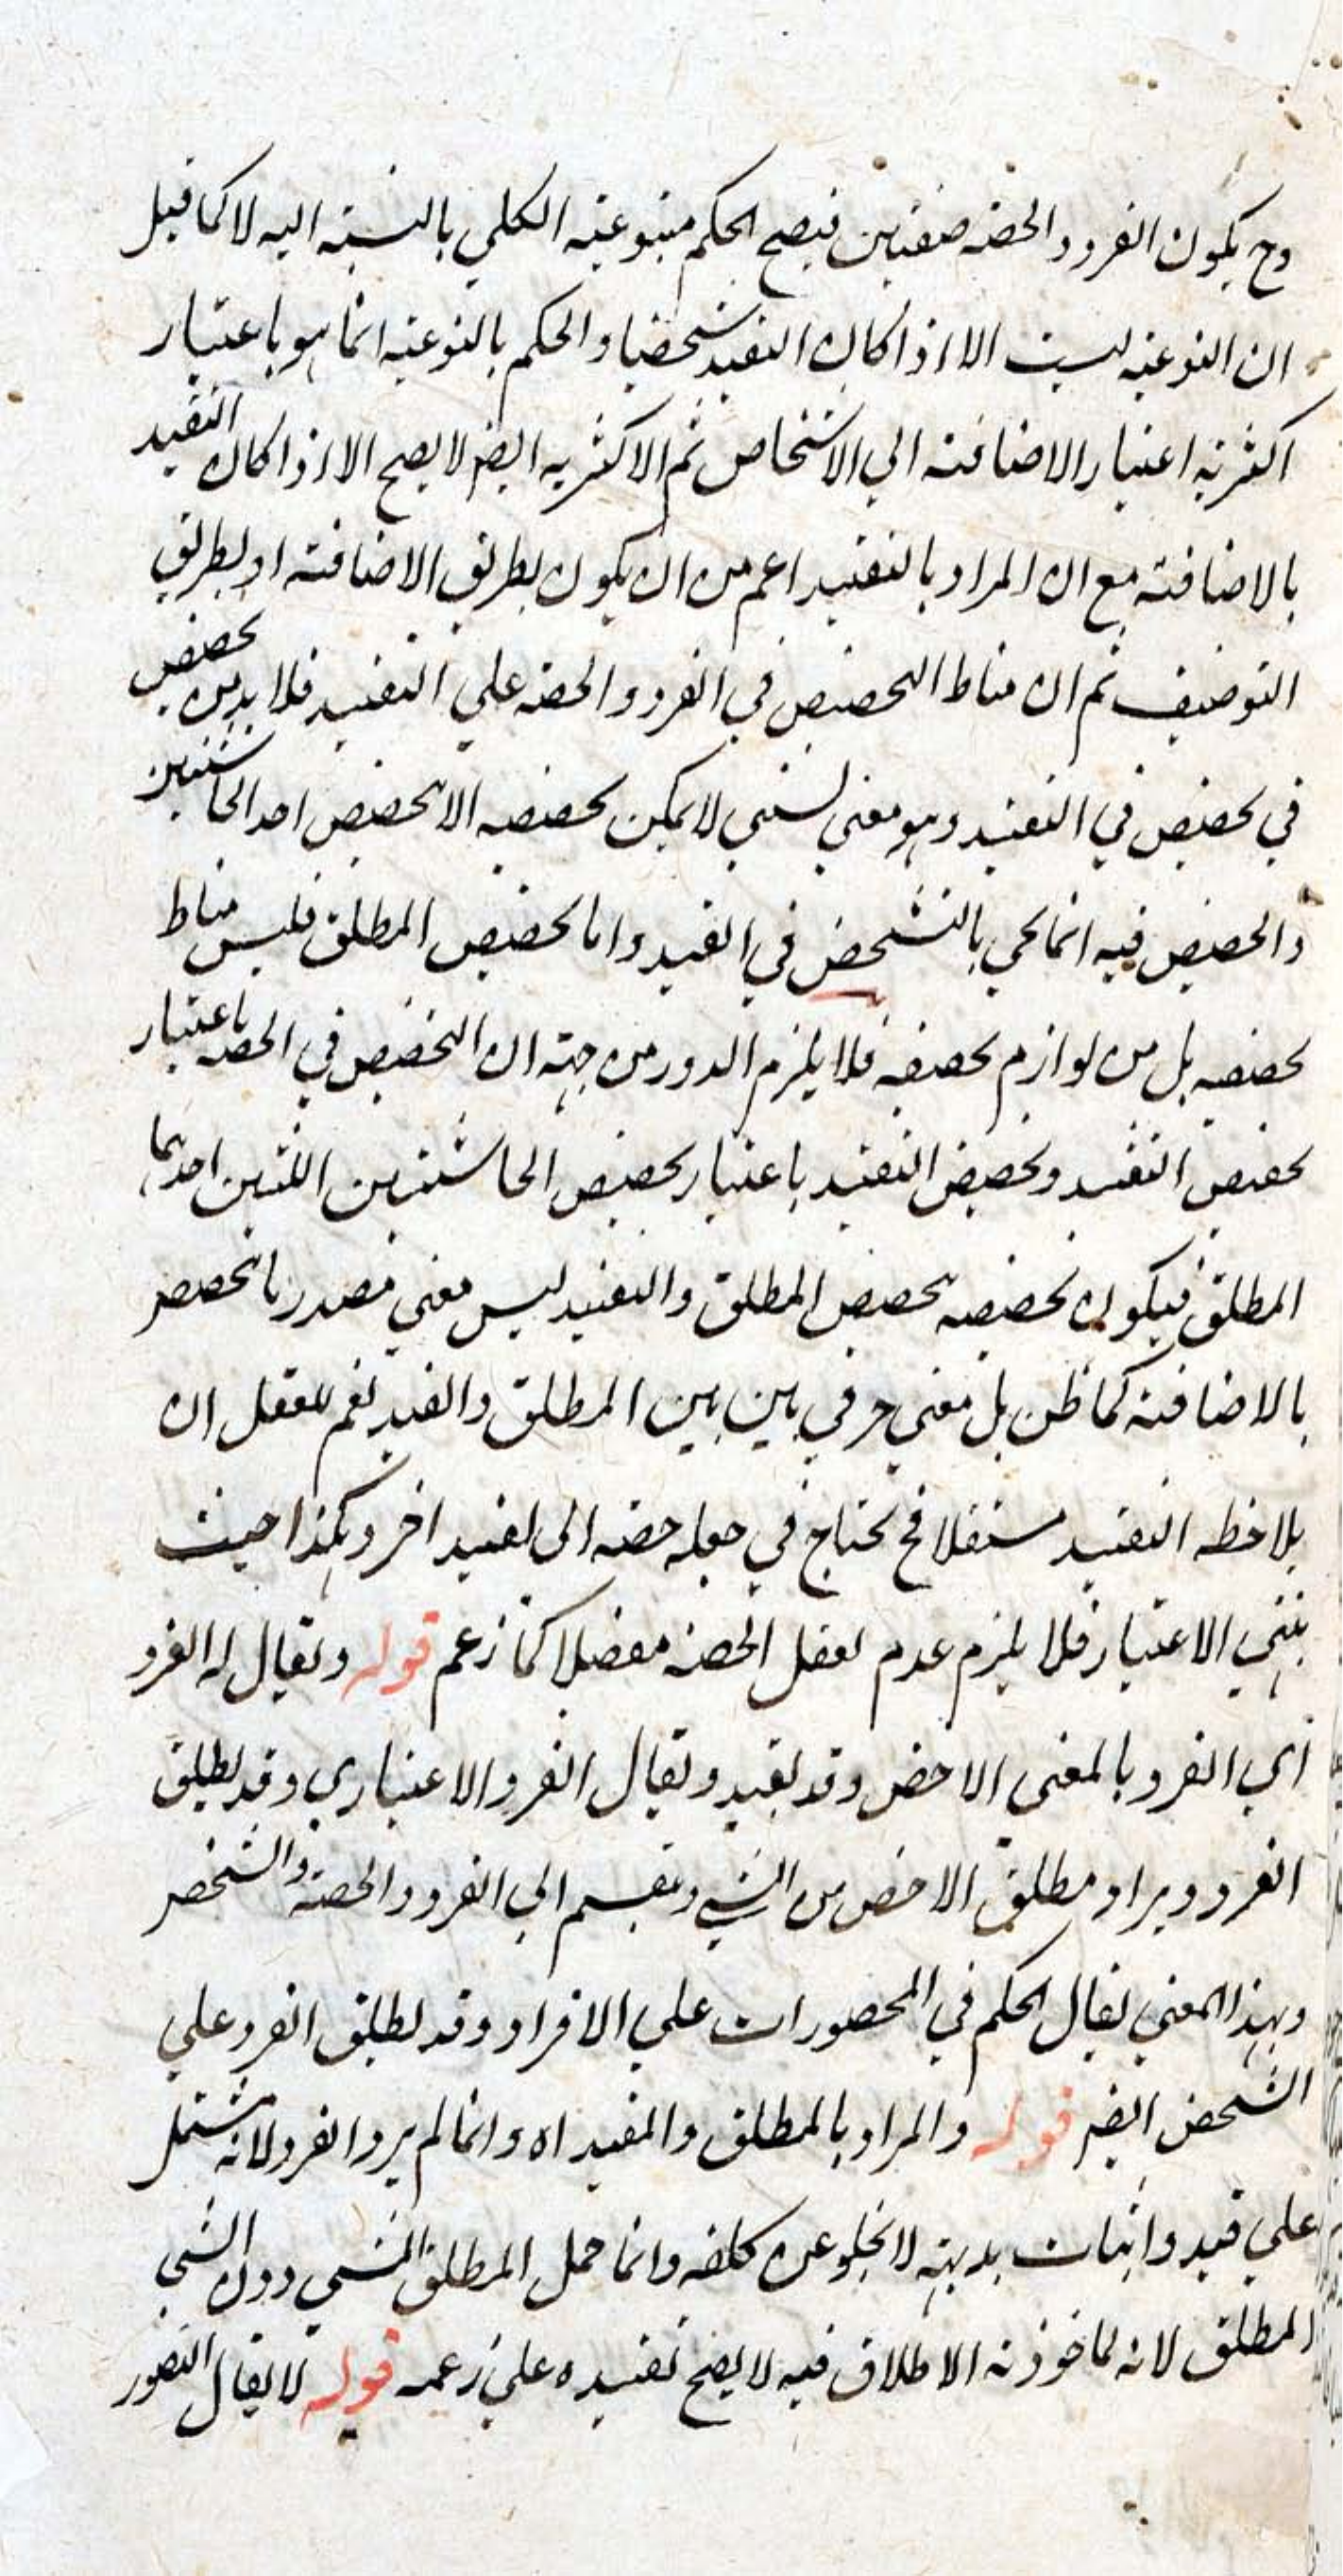 وح يكون الفرد والحصة صنفين فيصح الحكم بنوعية الكلي بالنسبة اليه لا كما قيل
ان النوعية ليست الا اذا كان التقييد شخصيا والحكم بالنوعية انما هو باعتبار
اكثرية اعتبار الاضافة الي الاشخاص ثم الاكثرية ايضا لا يصح الا اذا كان التقييد
بالاضافة مع ان المراد بالتقييد اعم من ان يكون بطريق الاضافة او بطريق
التوصيف ثم ان مناط التحصيص في الفرد والحصة علي التقييد فلا بد من تحصيص
في تحصيص في التقييد وهو معني نسبي لا يمكن تحصيصه الا بتحصيص احد الحاشيتين
والتحصيص فيه انما يحي بالتشخص في القيد واما تحصيص المطلق فليس مناط
تحصيصه بل من لوازم تحصيصه فلا يلزم الدور من جهة ان التحصيص في الحصة باعتبار
تحصيص التقييد وتحصيص التقييد باعتبار تحصيص الحاشيتين اللتين احدهما
المطلق فيكون تحصيصه بتحصيص المطلق والتقييد ليس معني مصدريا تحصص
بالاضافة كما ظن بل معني حرفي بين بين المطلق والقيد نعم للعقل ان
يلاحظه التقييد مستقلا فح يحتاج في جعله حصة الى تقييد اخر وهكذا حيث
ينتهي الاعتبار فلا يلزم عدم تعقل الحصة مفصلا كما زعم قوله ويقال له الفرد
اي الفرد بالمعنى الاخص وقد يقيد ويقال الفرد الاعتباري وقد يطلق
الفرد ويراد مطلق الاخص من الشي وينقسم الي الفرد والحصة والشخص
وبهذا المعني يقال الحكم في المحصورات علي الافراد وقد يطلق الفرد علي
الشخص ايضا قوله والمراد بالمطلق والمقيد اه وانما لم يرد الفرد لانه مشتمل
علي قيد واثبات بديهية لا يخلو عن كلفة وانما حمل المطلق الشي دون الشي
المطلق لانه لما خوذته الاطلاق فيه لا يصح تقييده علي زعمه قوله لا يقال التصور